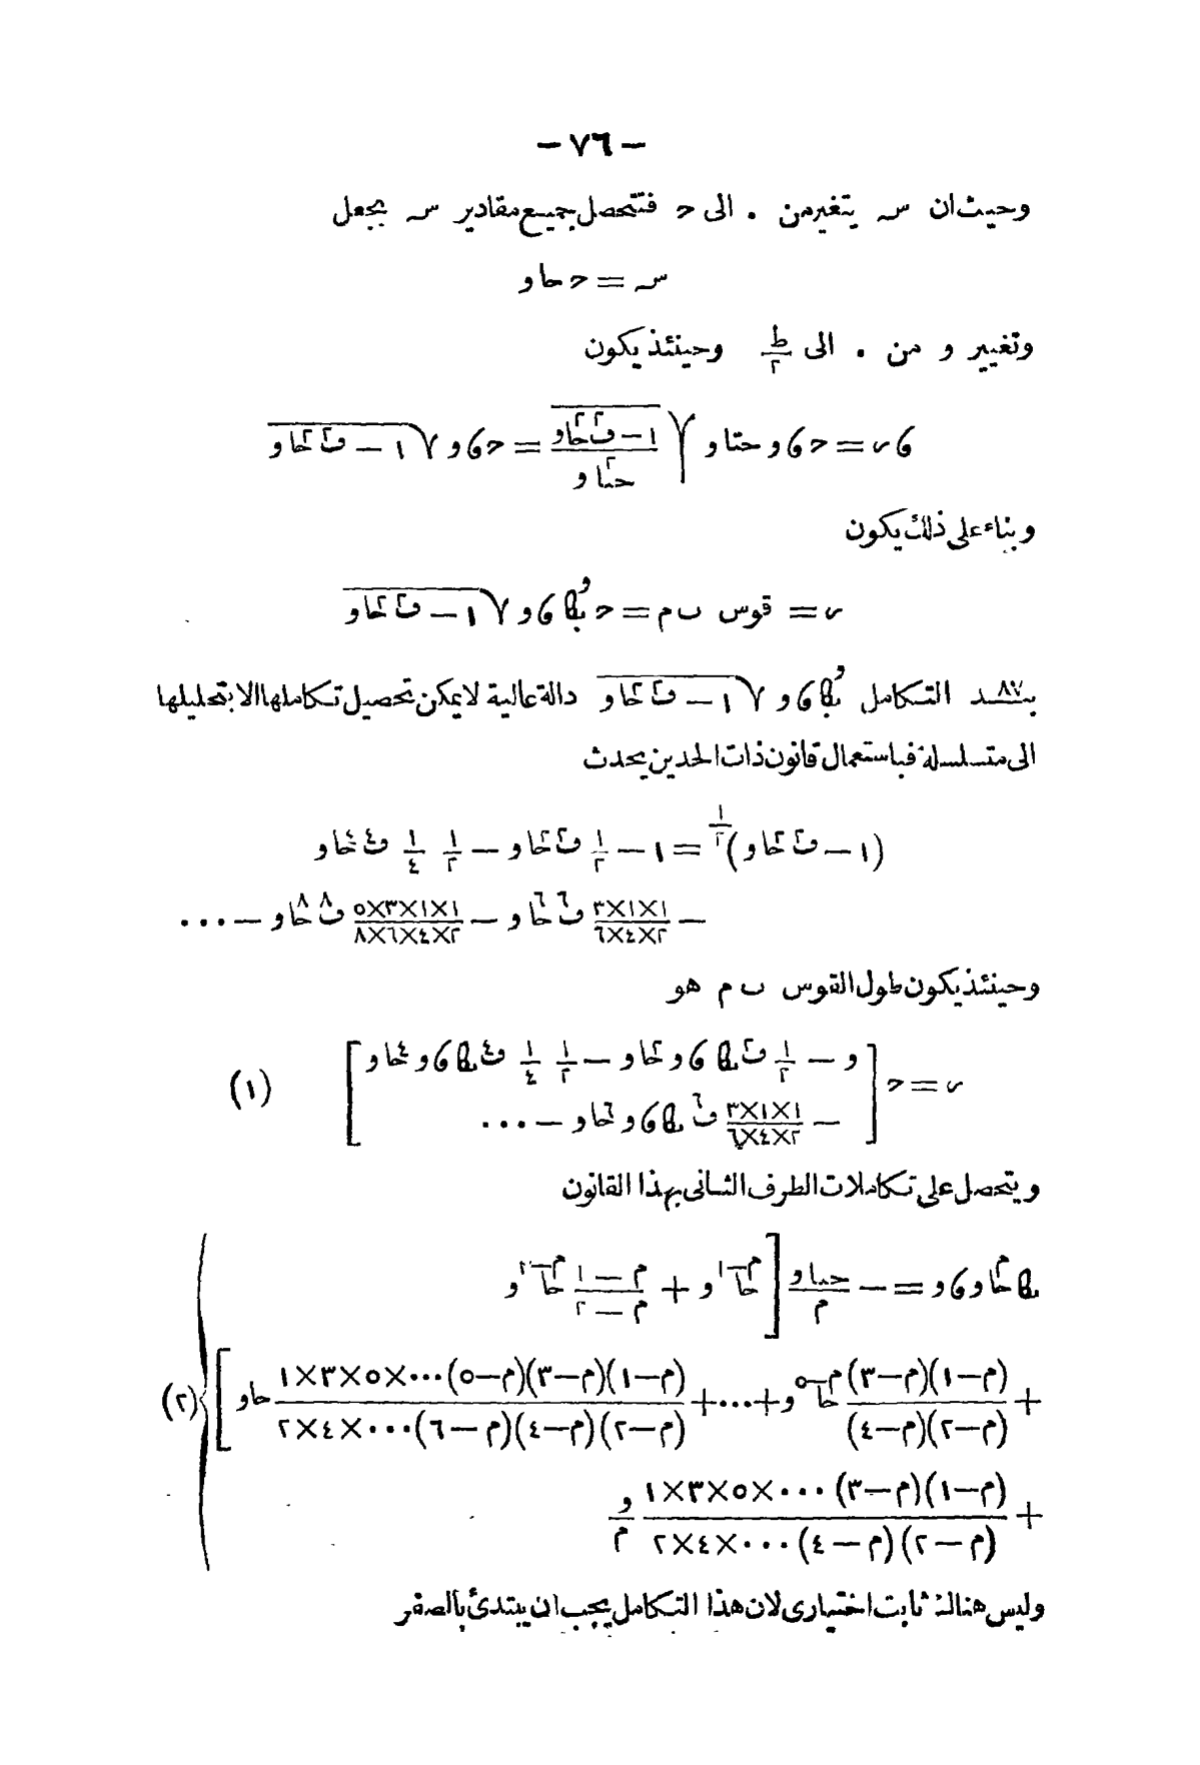 — ٧٦ —
وحيث ان سـ يتغير من ٠ الى حـ فتتحصل جميع مقادير سـ بجعل
سـ = حـ حا و
وتغيير و من ٠ الى ط/٢ وحينئذ يكون
ءى = حـ ء و حتا و √((١ — ف٢ حا٢ و)/(حتا٢ و)) = حـ ء و √(١ — ف٢ حا٢ و)
وبناء على ذلك يكون
ى = قوس ب م = حـ ء و √(١ — ف٢ حا٢ و)
بنـ ٨٧ ـد التكامل ء و √(١ — ف٢ حا٢ و) دالة عالية لايمكن تحصيل تكاملها الا بتحليلها
الى متسلسلة فباستعمال قانون ذات الحدين يحدث
(١ — ف٢ حا٢ و)^(١/٢) = ١ — ١/٢ ف٢ حا٢ و — ١/٢ ١/٤ ف٤ حا٤ و
— (١×١×٣)/(٢×٤×٦) ف٦ حا٦ و — (١×١×٣×٥)/(٢×٤×٦×٨) ف٨ حا٨ و — ...
وحينئذ يكون طول القوس ب م هو
ى = حـ [ و — ١/٢ ف٢ ء و حا٢ و — ١/٢ ١/٤ ف٤ ء و حا٤ و
— (١×١×٣)/(٢×٤×٦) ف٦ ء و حا٦ و — ... ] (١)
ويتحصل على تكاملات الطرف الثانى بهذا القانون
حا^م و ء و = — (حتا و)/م [ حا^(م—١) و + (م — ١)/(م — ٢) حا^(م—٣) و
+ ((م—١)(م—٣))/((م—٢)(م—٤)) حا^(م—٥) و + ... + ((م—١)(م—٣)(م—٥)...×٥×٣×١)/((م—٢)(م—٤)(م—٦)...×٤×٢) حا و ] (٢)
+ ((م—١)(م—٣)...×٥×٣×١)/((م—٢)(م—٤)...×٤×٢) و/م
وليس هنالك ثابت اختيارى لان هذا التكامل يجب ان يبتدئ بالصفر